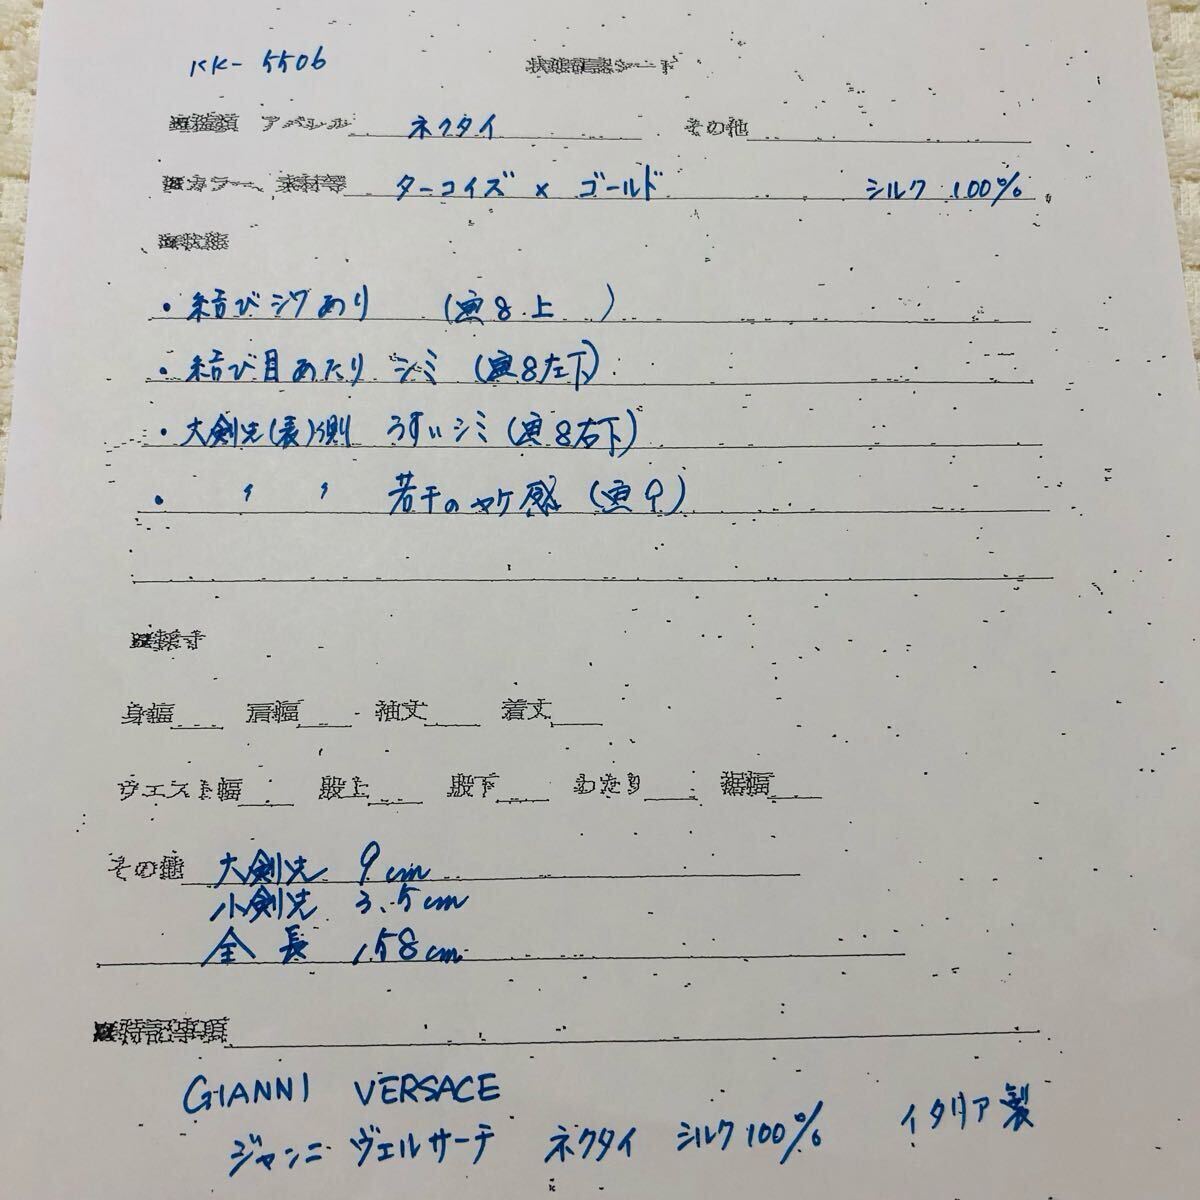 KK-5506 状態確認シート
■種類 アパレル ネクタイ その他
■カラー、素材等 ターコイズ × ゴールド シルク 100%
■状態
・結びジワあり (画8上 )
・結び目あたり シミ (画8左下)
・大剣先(表)側 うすいシミ (画8右下)
・ 〃 〃 若干のヤケ感 (画9)
■採寸
身幅 肩幅 袖丈 着丈
ウエスト幅 股上 股下 わたり 裾幅
その他 大剣先 9cm
小剣先 3.5cm
全長 158cm
■特記事項
GIANNI VERSACE
ジャンニ ヴェルサーチ ネクタイ シルク100% イタリア製